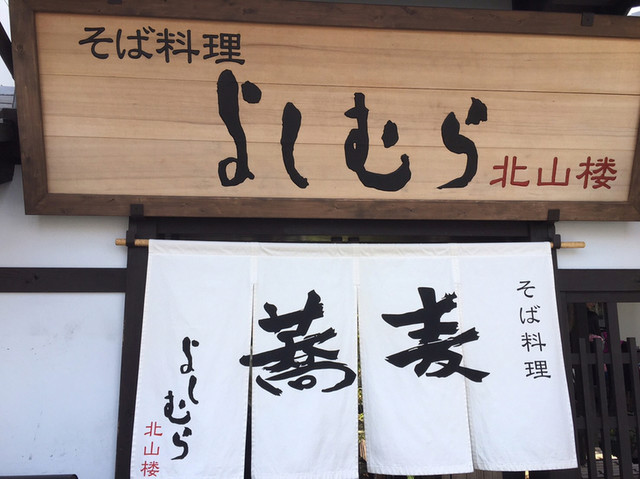 そば料理
よしむら
北山楼
そば料理
蕎麦
よしむら
北山楼